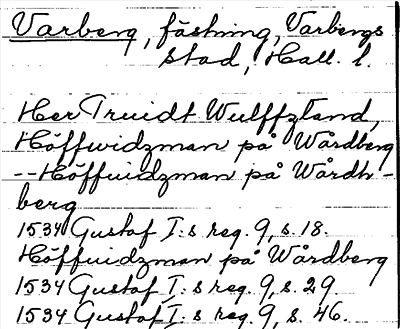 Varberg, fästning, Varbergs
stad, Hall. l.
Her Truidt Wulffzstand,
Höffwidzman på Wårdberg
--Höffuidzman på Wårdh-
berg
1534 Gustaf I:s reg. 9, s. 18.
Höffuidzman på Wårdberg
1534 Gustaf I:s reg. 9, s. 29.
1534 Gustaf I:s reg. 9, s. 46.